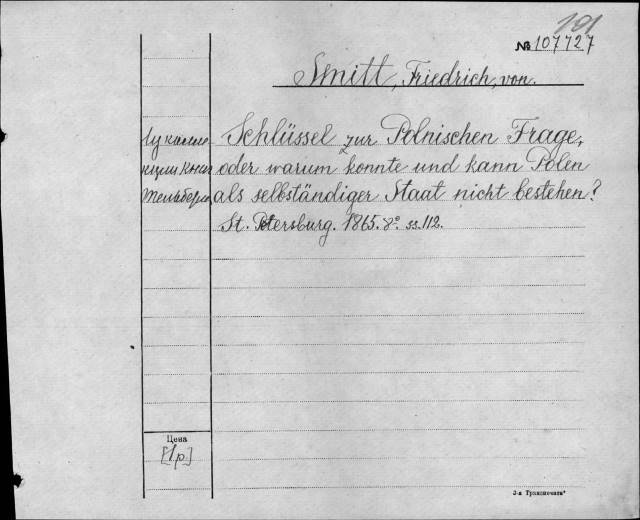 191
№ 107727
Smitt, Friedrich, von.
Schlüssel zur Polnischen Frage,
oder warum konnte und kann Polen
als selbständiger Staat nicht bestehen?
St. Petersburg. 1865. 8° ss. 112.
Цена
[1р]
3-я Транспечать"